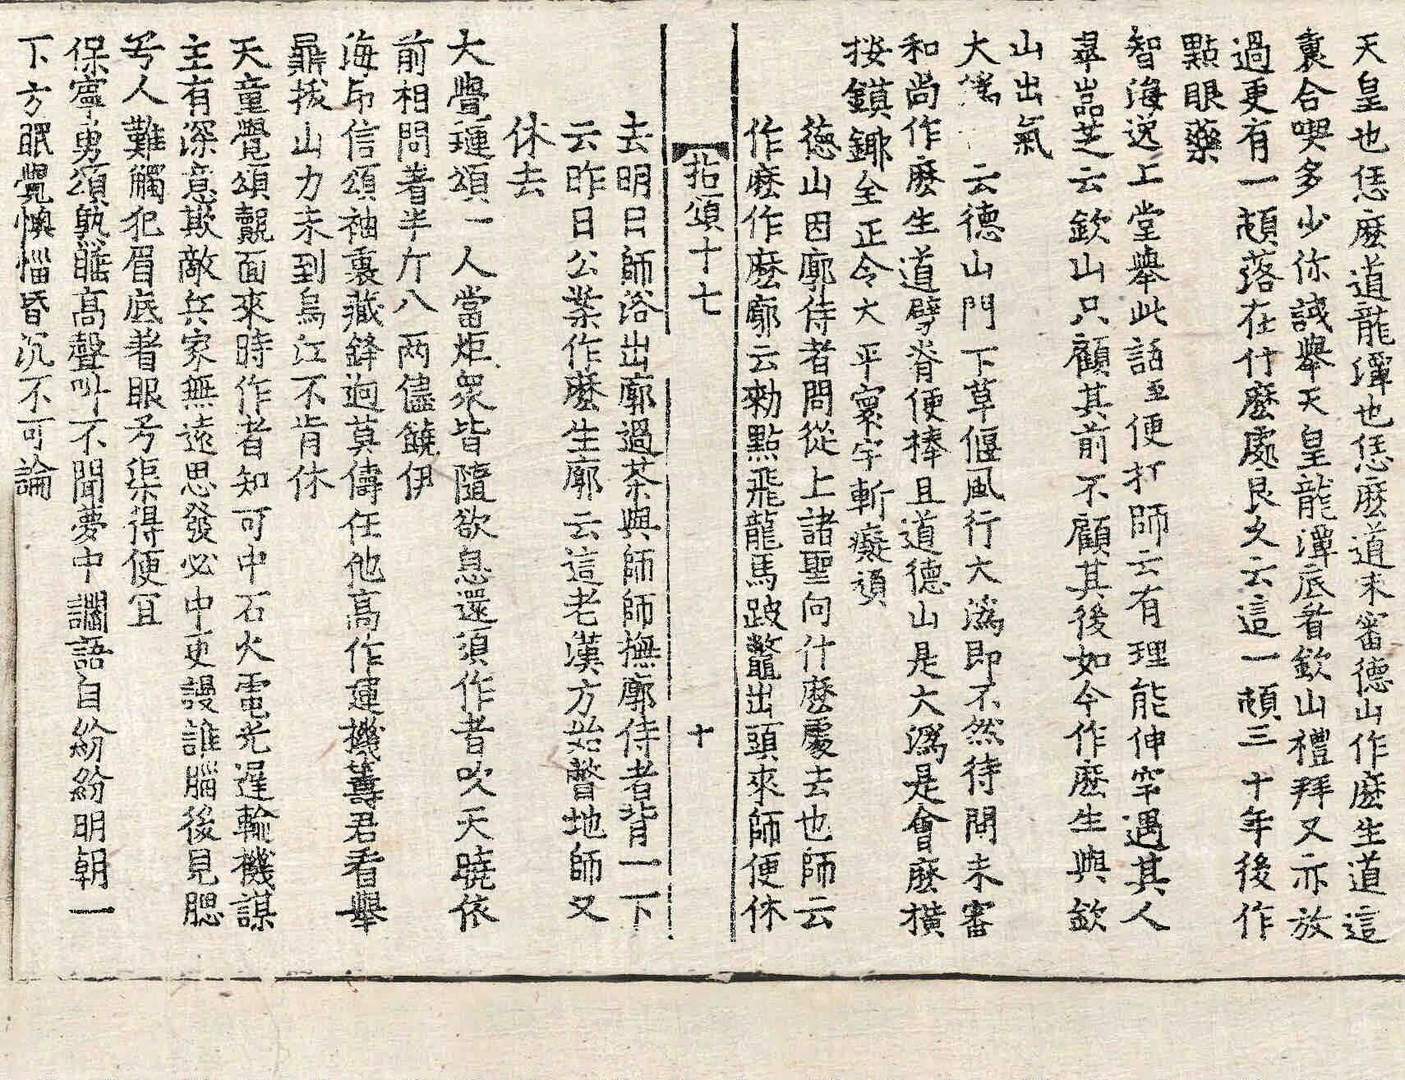 天皇也恁麽道龍潭也恁麽道未審德山作麽生道這
裏合喫多少你試舉天皇龍潭底看欽山禮拜又亦放
過更有一頓落在什麽處良久云這一頓三十年後作
點眼藥
智海逸上堂舉此話至便打師云有理能伸罕遇其人
尋喆芝云欽山只顧其前不顧其後如今作麽生與欽
山出氣
大潙 云德山門下草偃風行大潙即不然待問未審
和尚作麽生道劈脊便棒且道德山是大潙是會麽橫
按鏌鎁全正令大平寰宇斬癡頑
德山因廓侍者問從上諸聖向什麽處去也師云
作麽作麽廓云勑點飛龍馬跛鼈出頭來師便休
拈頌十七 十
去明日師浴出廓過茶與師師撫廓侍者背一下
云昨日公案作麽生廓云這老漢方始瞥地師又
休去
大覺璉頌一人當炬衆皆隨欲息還須作者吹天曉依
前相問著半斤八兩儘饒伊
海印信頌袖裏藏鋒逈莫儔任他高作運機籌君看舉
鼎拔山力未到烏江不肯休
天童覺頌覿面來時作者知可中石火電光遲輸機謀
主有深意欺敵兵家無遠思發必中更謾誰腦後見腮
兮人難觸犯眉底着眼兮渠得便冝
保寧勇頌孰睡高聲叫不聞夢中讕語自紛紛明朝一
下方眠覺懊惱昏沉不可論